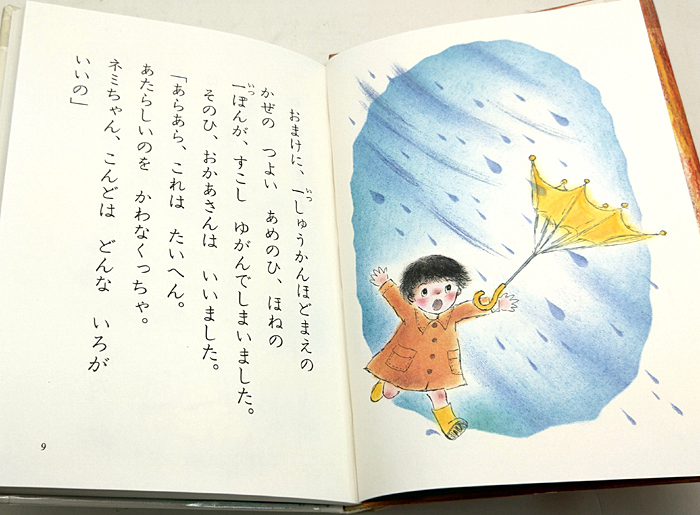 おまけに、一しゅうかんほどまえの
かぜの　つよい　あめのひ、ほねの
一ぽんが、すこし　ゆがんでしまいました。
そのひ、おかあさんは　いいました。
「あらあら、これは　たいへん。
あたらしいのを　かわなくっちゃ。
ネミちゃん、こんどは　どんな　いろが
いいの」
9